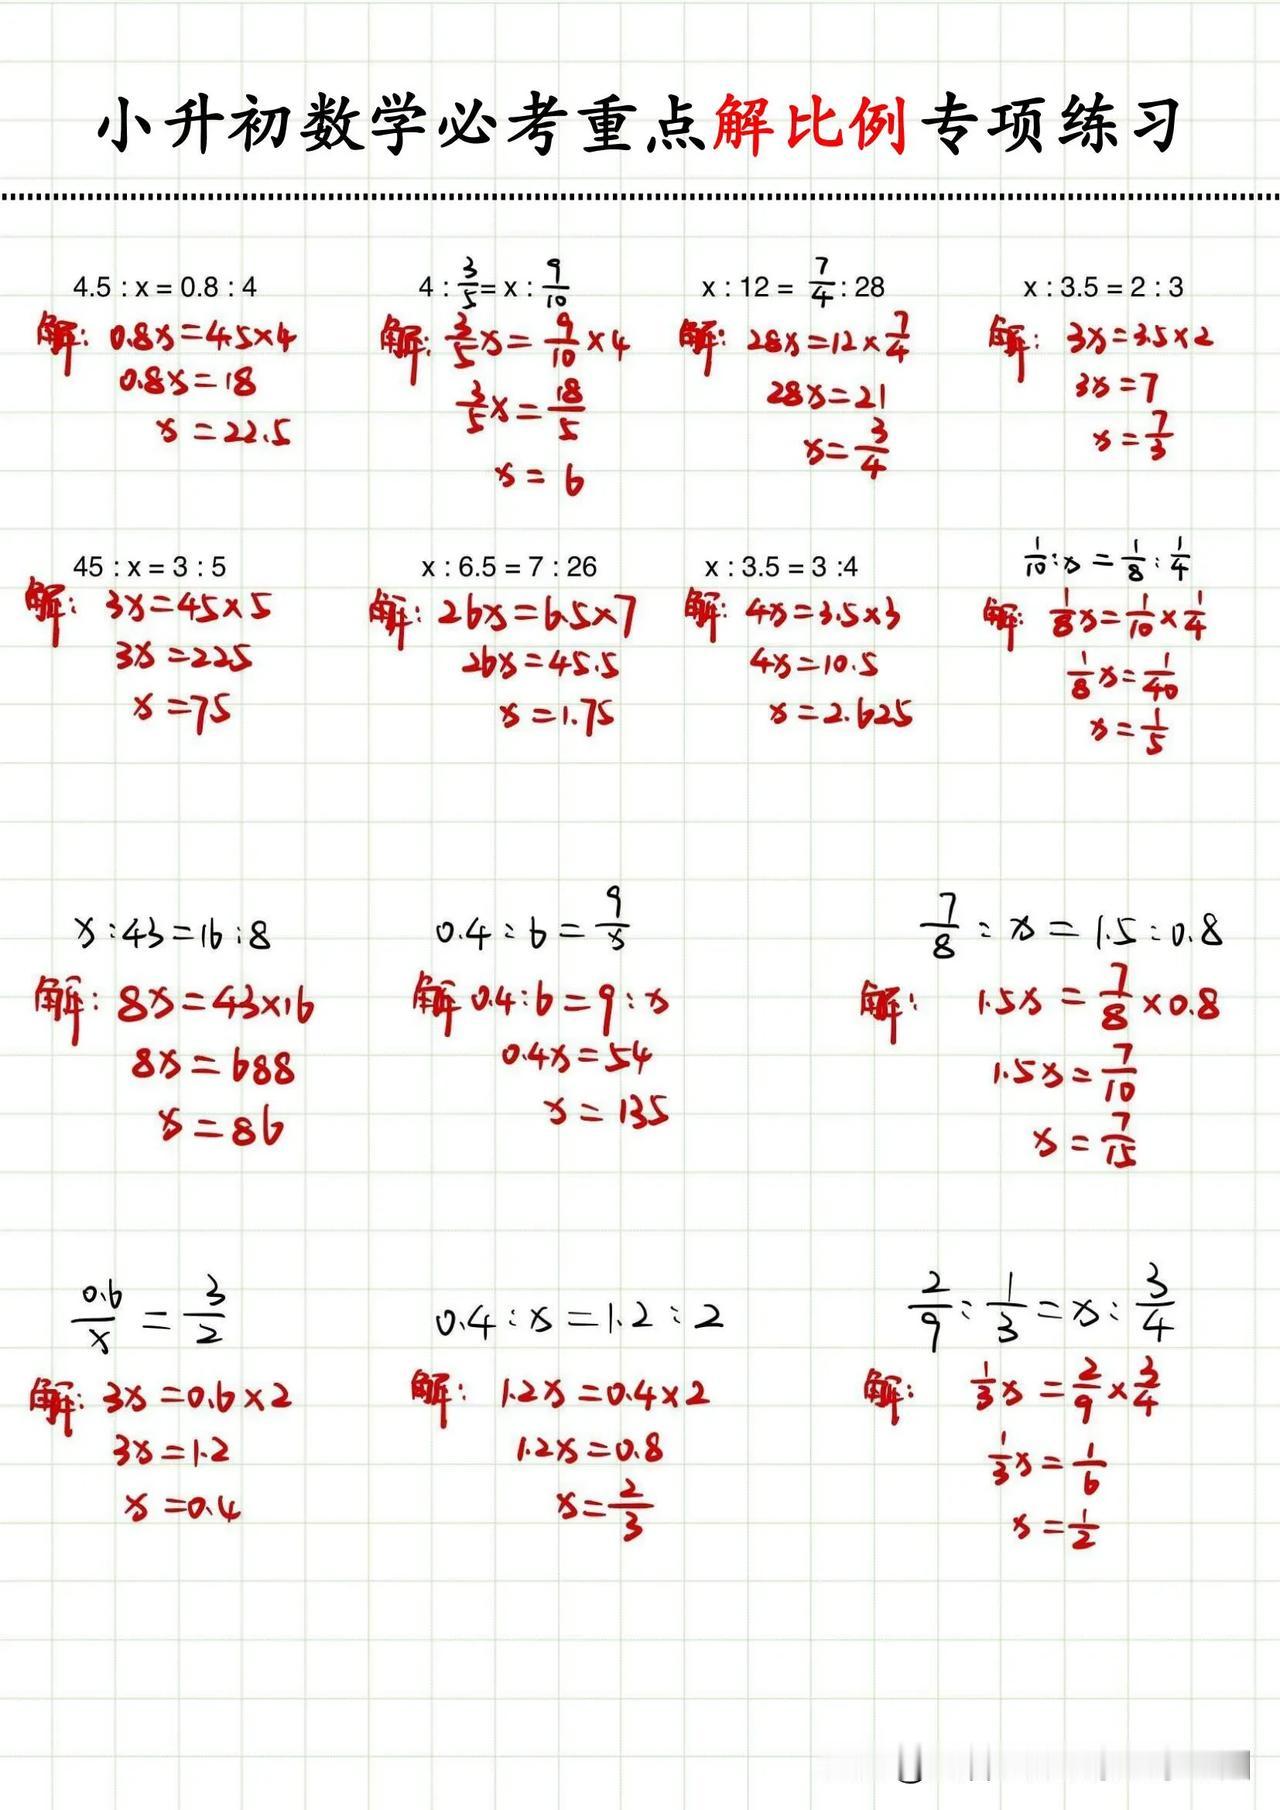 小升初数学必考重点解比例专项练习
4.5 : x = 0.8 : 4
解: 0.8x=4.5×4
0.8x=18
x=22.5
4 : 3/5 = x : 9/10
解: 3/5x=9/10×4
3/5x=18/5
x=6
x : 12 = 7/4 : 28
解: 28x=12×7/4
28x=21
x=3/4
x : 3.5 = 2 : 3
解: 3x=3.5×2
3x=7
x=7/3
45 : x = 3 : 5
解: 3x=45×5
3x=225
x=75
x : 6.5 = 7 : 26
解: 26x=6.5×7
26x=45.5
x=1.75
x : 3.5 = 3 :4
解: 4x=3.5×3
4x=10.5
x=2.625
1/10:x=1/8:1/4
解: 1/8x=1/10×1/4
1/8x=1/40
x=1/5
x:43=16:8
解: 8x=43×16
8x=688
x=86
0.4:6=9/x
解 0.4:6=9:x
0.4x=54
x=135
7/8:x=1.5:0.8
解: 1.5x=7/8×0.8
1.5x=7/10
x=7/15
0.6/x=3/2
解: 3x=0.6×2
3x=1.2
x=0.4
0.4:x=1.2:2
解: 1.2x=0.4×2
1.2x=0.8
x=2/3
2/9:1/3=x:3/4
解: 1/3x=2/9×3/4
1/3x=1/6
x=1/2